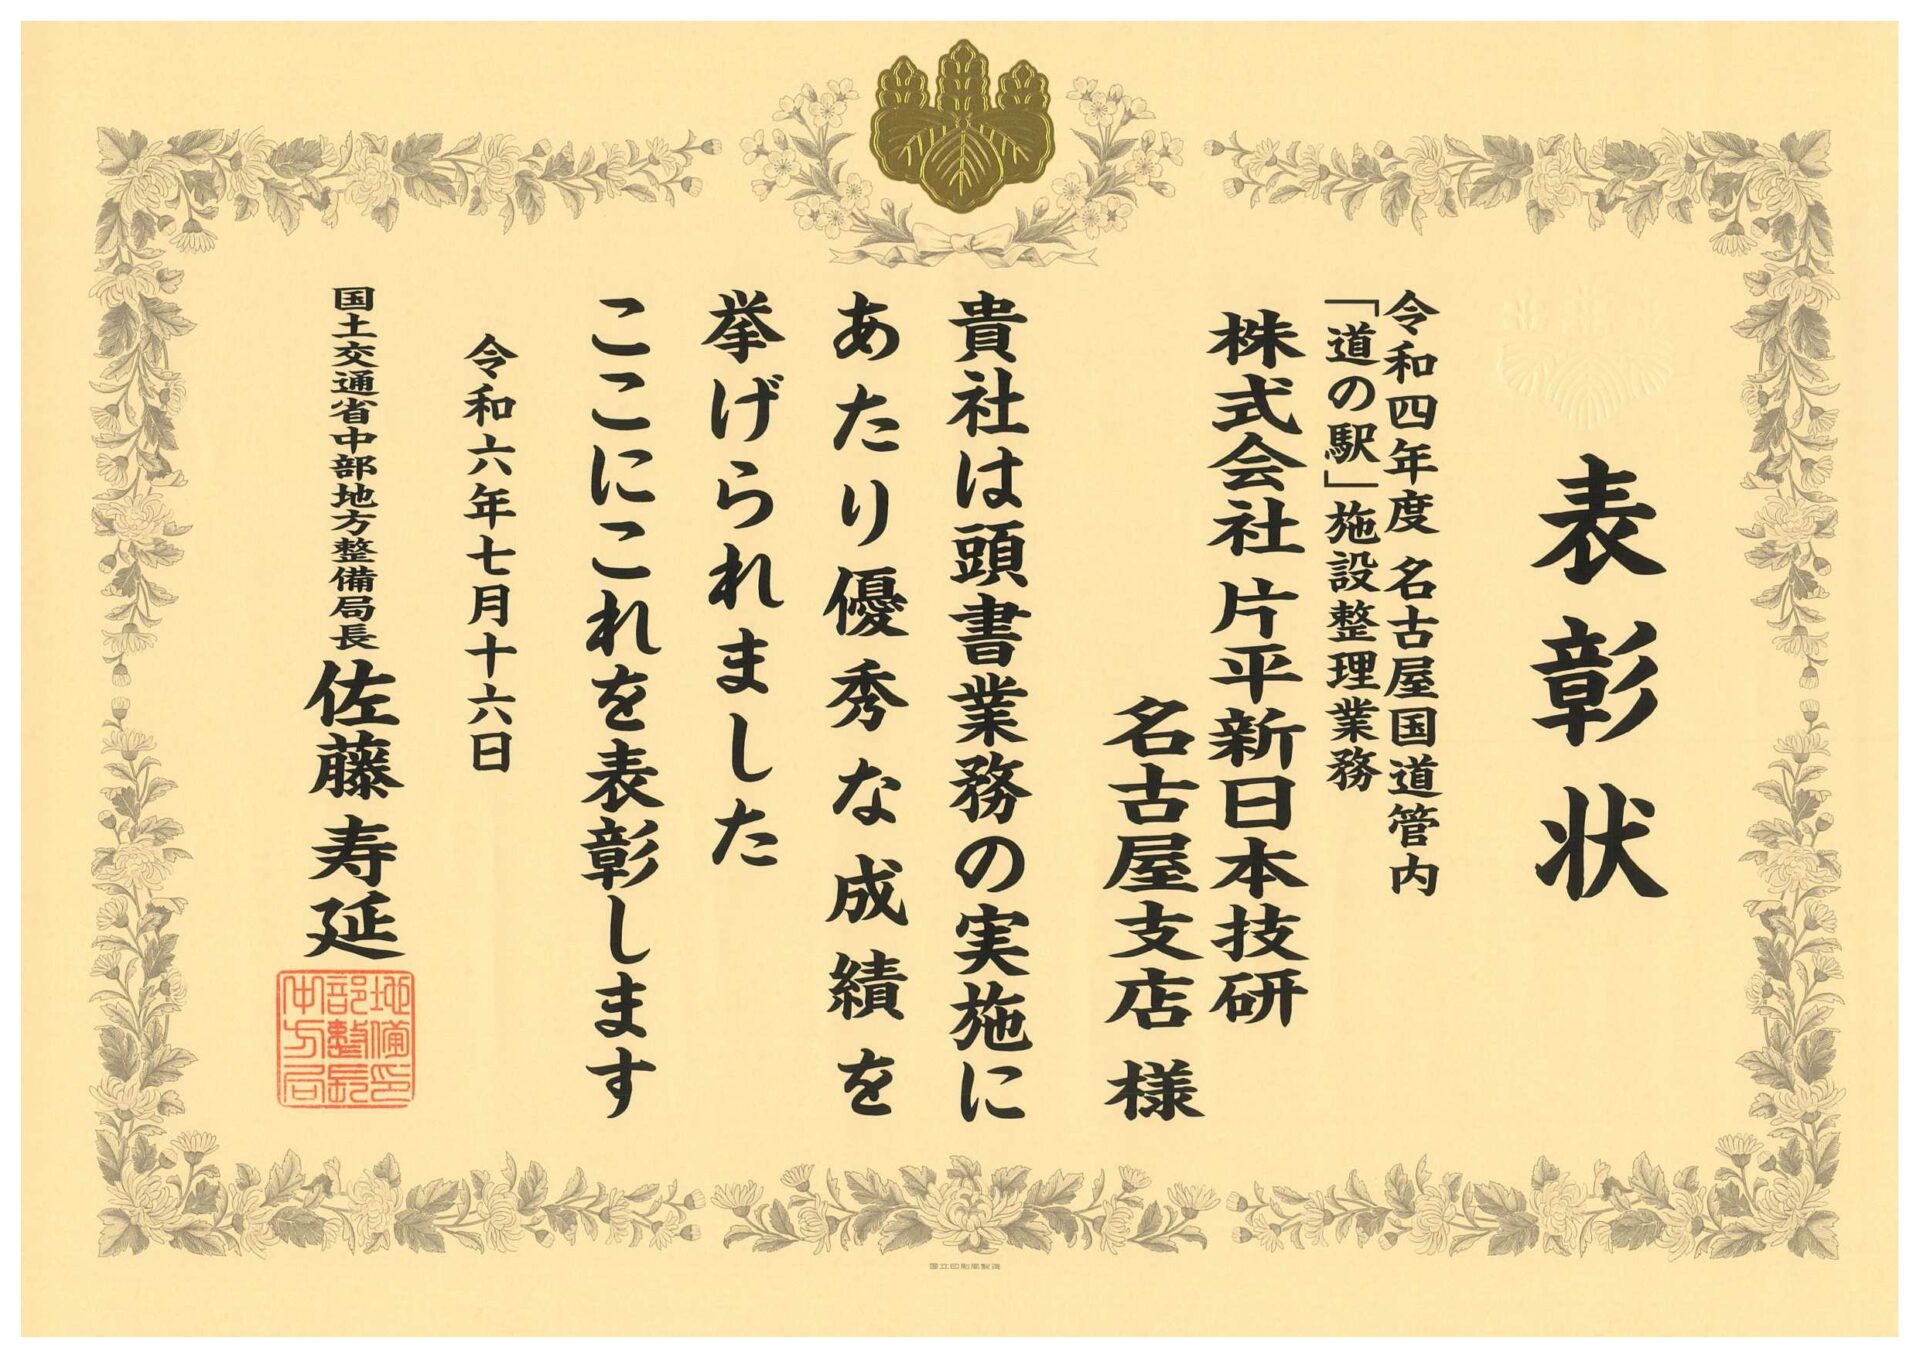 表彰状
令和四年度 名古屋国道管内
「道の駅」施設整理業務
株式会社 片平新日本技研
名古屋支店 様
貴社は頭書業務の実施に
あたり優秀な成績を
挙げられました
ここにこれを表彰します
令和六年七月十六日
国土交通省中部地方整備局長 佐藤寿延
地備印
部整長
中方局
国立印刷局製造